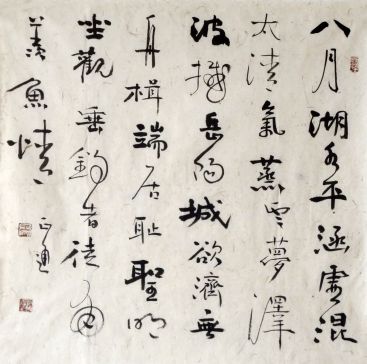 八月湖水平涵虛混
太清氣蒸雲夢澤
波撼岳陽城欲濟無
舟楫端居耻聖明
坐觀垂釣者徒有
羨魚情